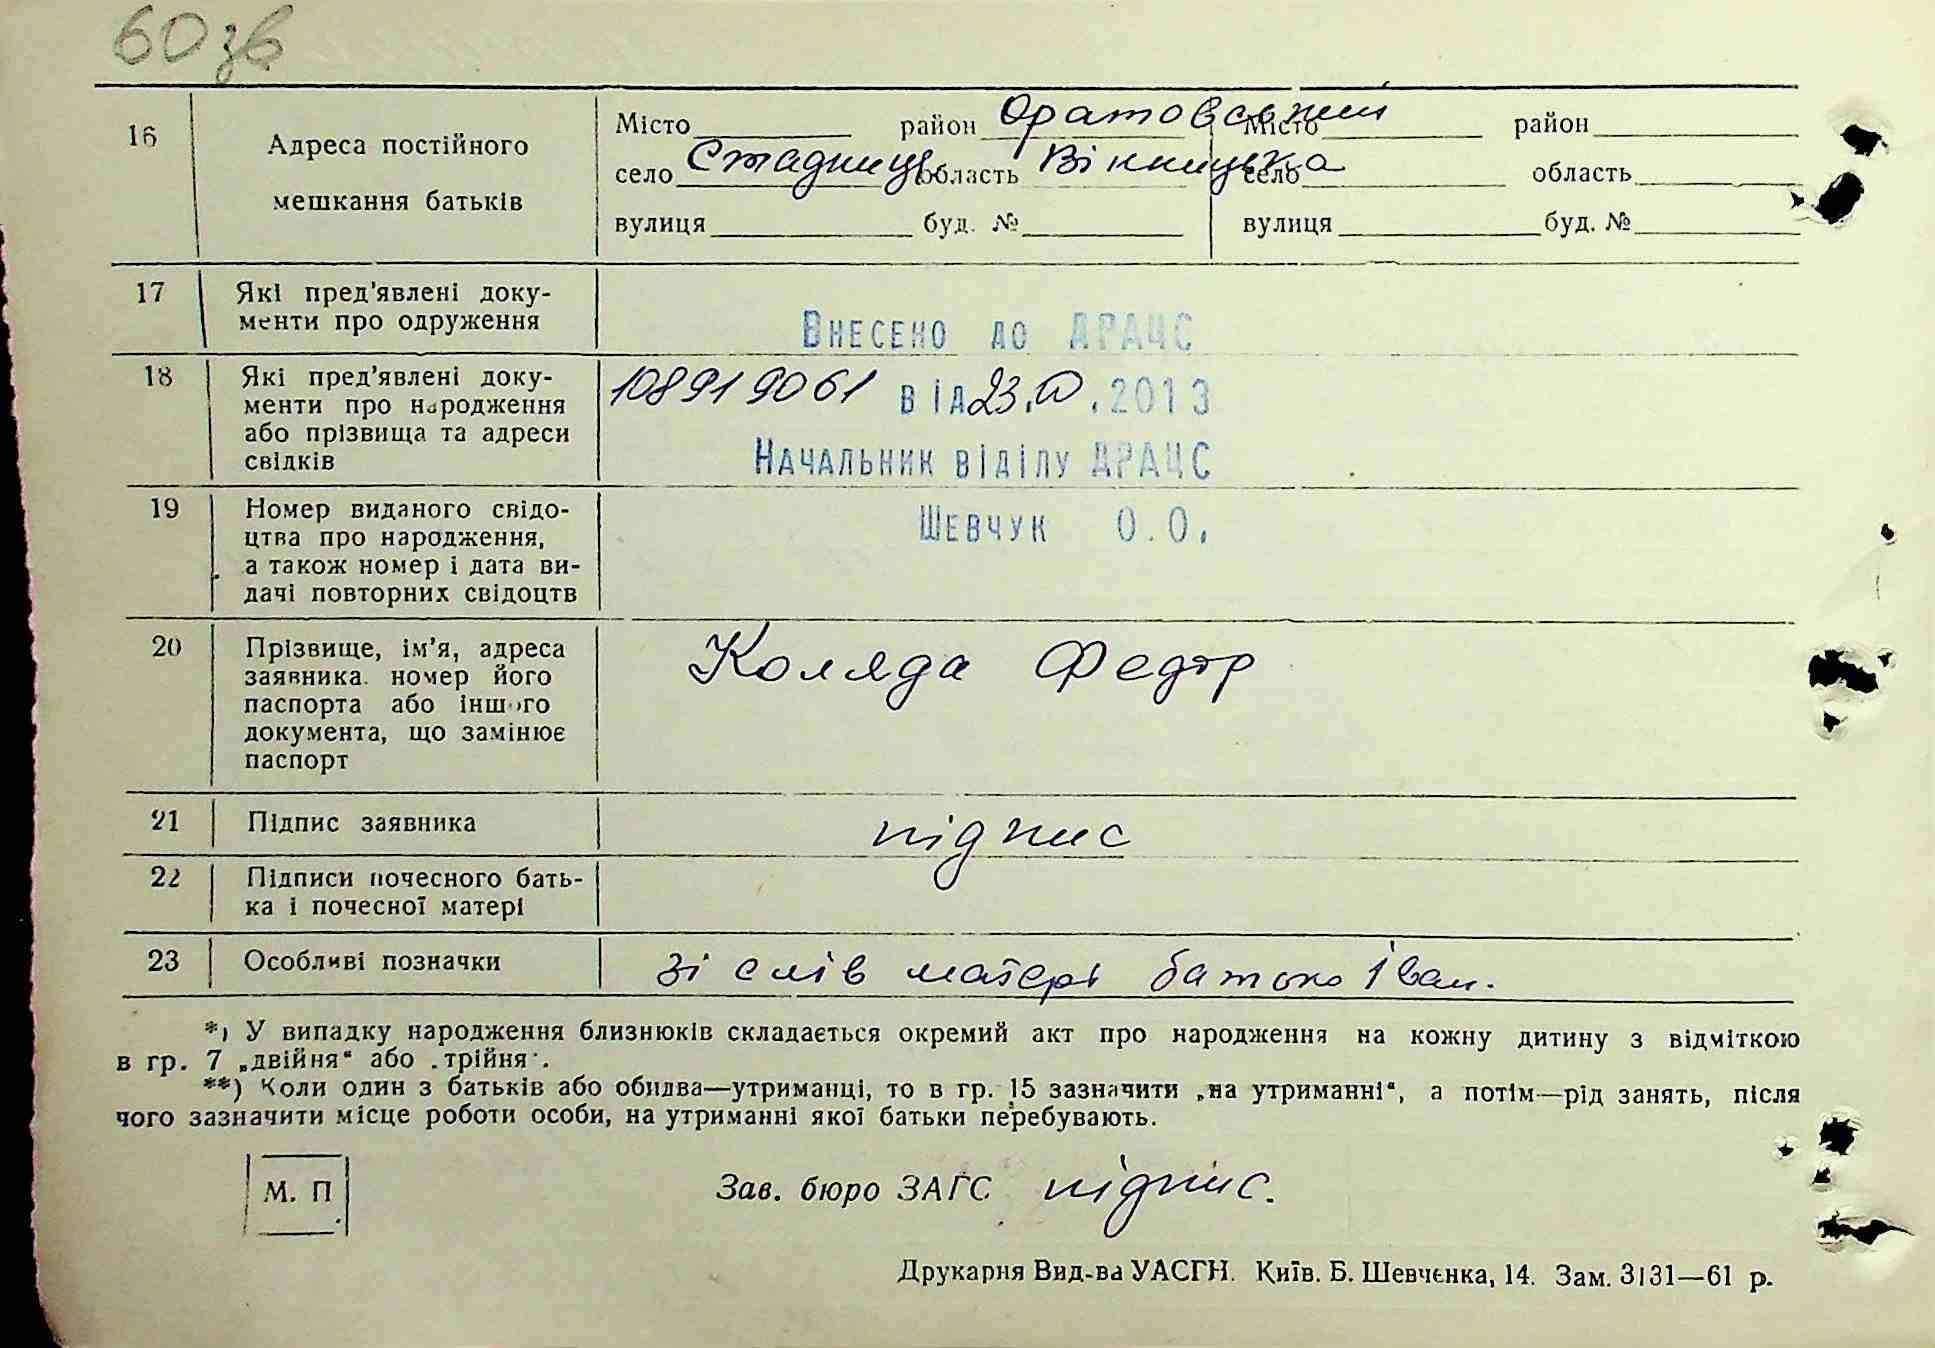 60 зв
16 Адреса постійного мешкання батьків
Місто район Оратовский Місто район
село Стадниця область Вінницька село область
вулиця буд. № вулиця буд. №
17 Які пред'явлені доку-
менти про одруження
Внесено до ДРАЦС
18 Які пред'явлені доку-
менти про народження
або прізвища та адреси
свідків
108919061 від 23. .2013
Начальник віділу ДРАЦС
19 Номер виданого свідо-
цтва про народження,
а також номер і дата ви-
дачі повторних свідоцтв
Шевчук О.О.
20 Прізвище, ім'я, адреса
заявника, номер його
паспорта або іншого
документа, що замінює
паспорт
Коляда Федір
21 Підпис заявника підпис
22 Підписи почесного бать-
ка і почесної матері
23 Особливі позначки зі слів матері батько Іван.
*) У випадку народження близнюків складається окремий акт про народження на кожну дитину з відміткою
в гр. 7 „двійня“ або „трійня“.
**) Коли один з батьків або обидва—утриманці, то в гр. 15 зазначити „на утриманні“, а потім—рід занять, після
чого зазначити місце роботи особи, на утриманні якої батьки перебувають.
М. П. Зав. бюро ЗАГС підпис.
Друкарня Вид-ва УАСГН. Київ. Б. Шевченка, 14. Зам. 3131—61 р.